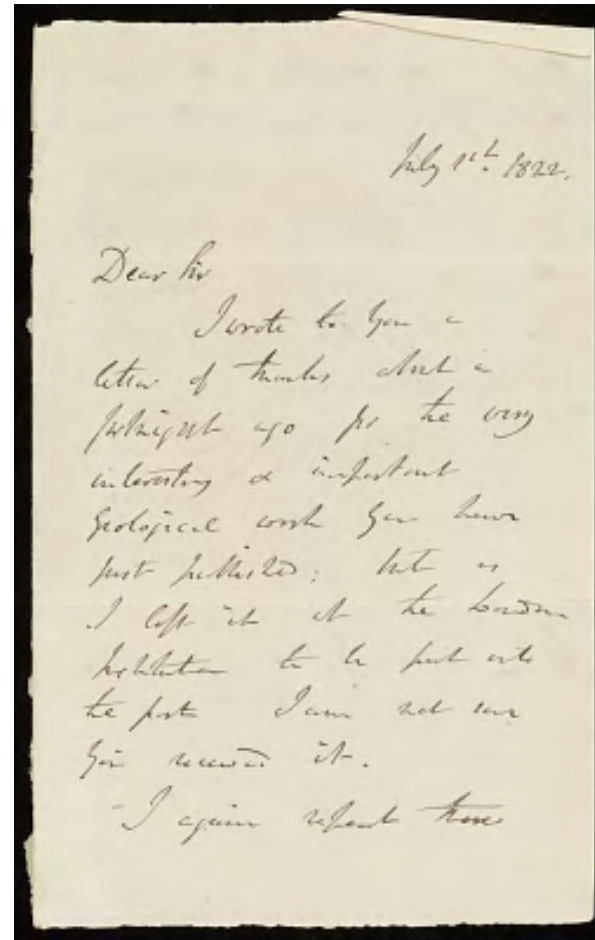 July 1st. 1822.
Dear Sir
I wrote to you a
letter of thanks about a
fortnight ago for the very
interesting & important
Geological work you have
just published; but as
I left it at the London
Institution to be put into
the post I am not sure
you received it.
I again repeat those